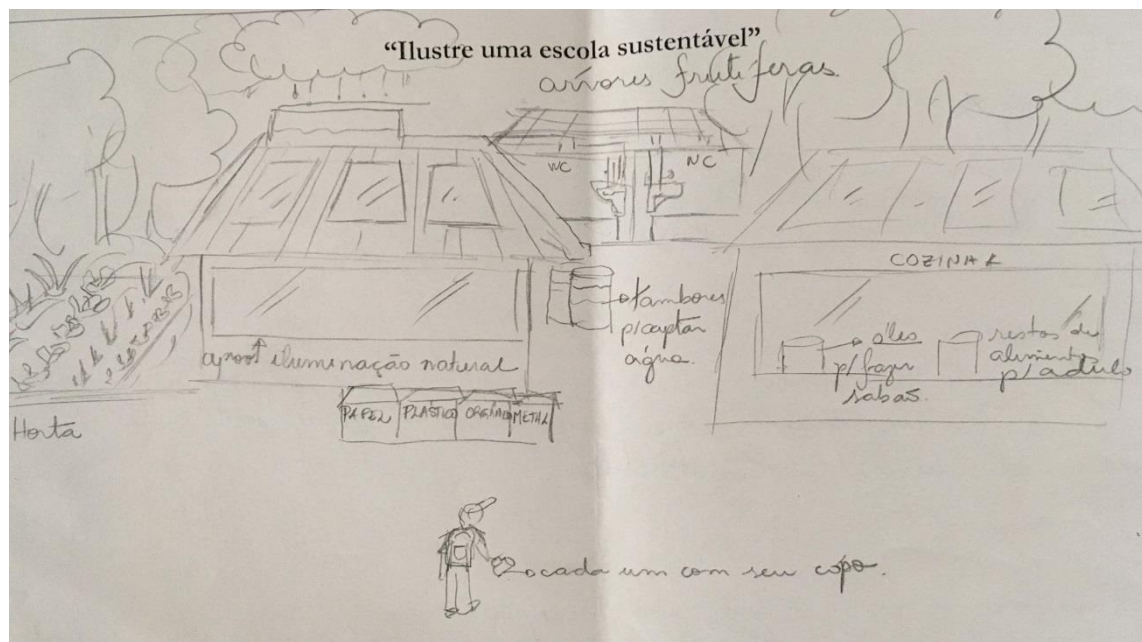 “Ilustre uma escola sustentável”
árvores frutíferas.
WC
WC
COZINHA
tambores
p/captar
água.
óleo
p/ fazer
sabão.
restos de
alimentos
p/ adubo
iluminação natural
PAPEL PLÁSTICO ORGÂNICO METAL
Horta
cada um com seu copo.